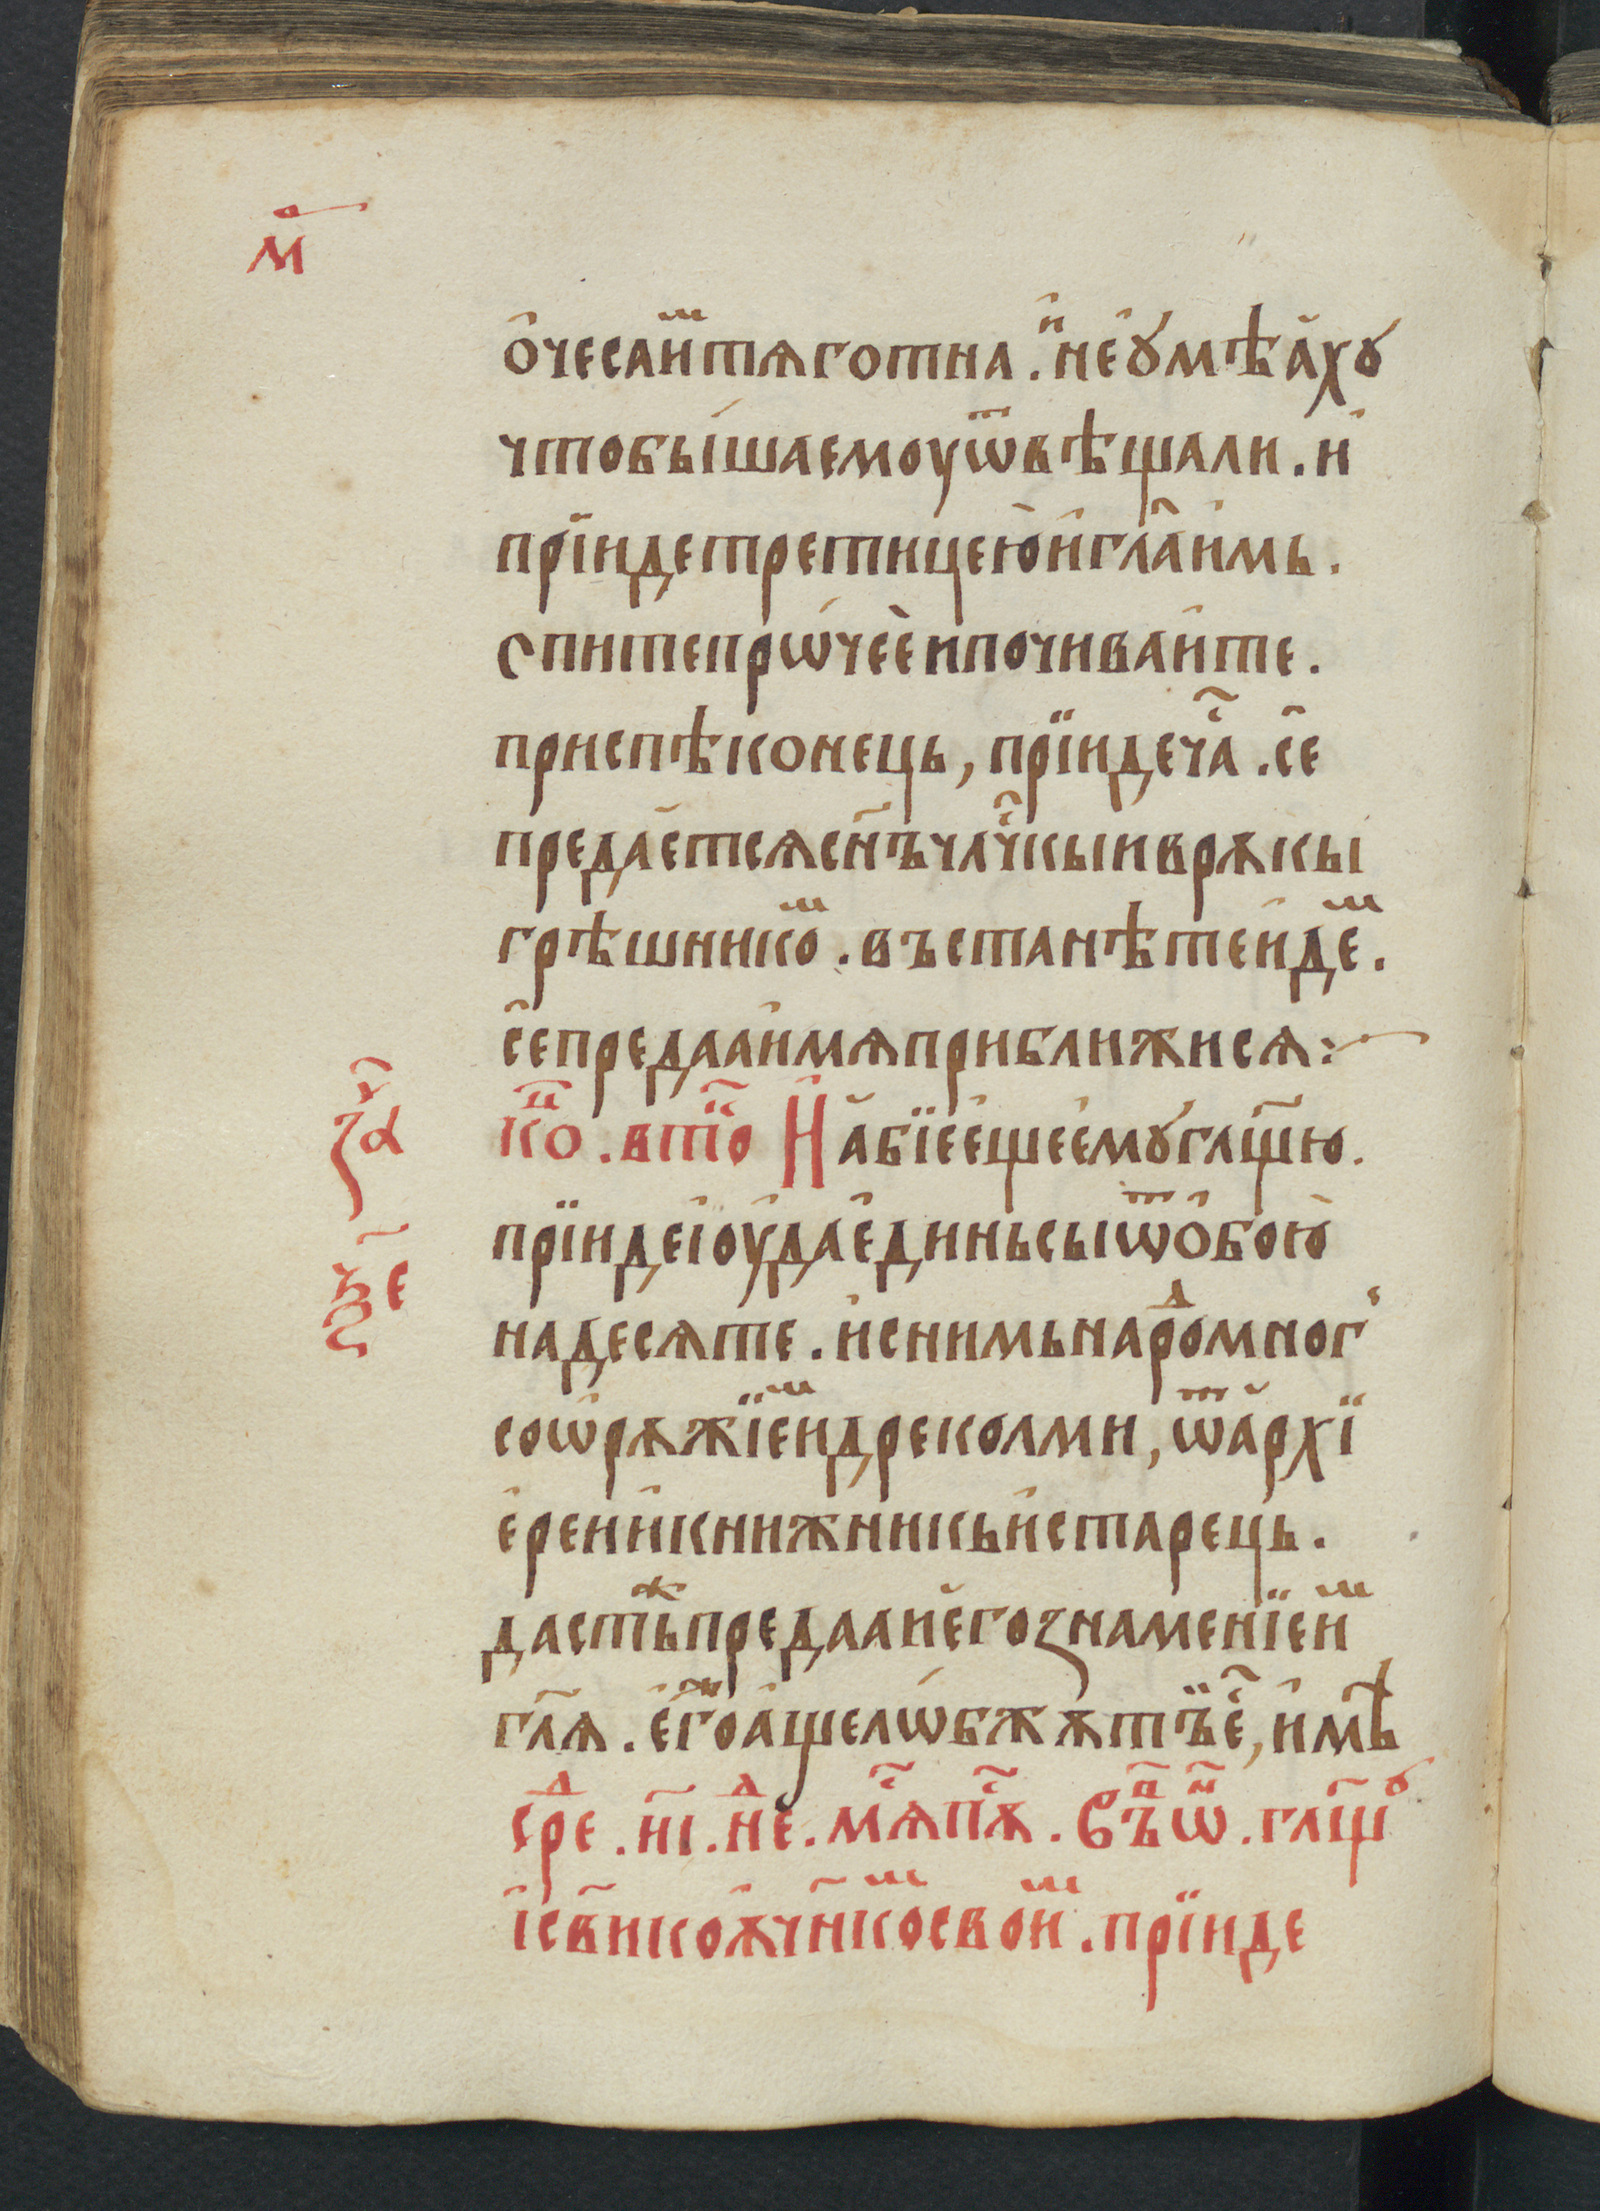 м҃
о҆чеса и҆мⷮ тѧготна . и҆ не ꙋ҆мѣа҆хꙋ
что бы́ша емоу ѿвѣщали . и҆
прїиде третицею и҆ гл҃а и҆мь .
спите прѡ́чеѐ и почиваи҆те .
приспѣ конець, прїиде чаⷭ҇ . се҆
предае҆тсѧ сн҃ъ члчⷭ҇кыи в рѫкы
грѣшникоⷨ . въстанѣте идеⷨ .
се҆ предааи҆ мѧ приближисѧ :
заⷱ҇
ѯ҃е
коⷩ҇ . втоⷬ҇ И҆ а҆бїе е҆ще е҆мꙋ гл҃щю .
прїиде і҆оу́да е҆динь сы ѿ о҆бою
надесѧте . и҆ с нимь нароⷣ многь
со ѡ҆рѫжїеⷨ и дреколми, ѿ а҆рхї
е҆реи и҆ книжникь и҆ старець .
дастьⷤ предааи е҆го знаменїе иⷨ
гл҃ѧ . е҆гоⷤ а҆ще лѡбжѫ тъ е҆ⷭ, и҆мѣ
среⷣ . н҃і . неⷣ . мⷭ҇ѧпⷭ҇ѫ . Въⷪ҇ ѡⷩ҇ . гл҃щꙋ
і҆с҃ви ко ѫч҃нкоⷨ своиⷨ . прїиде